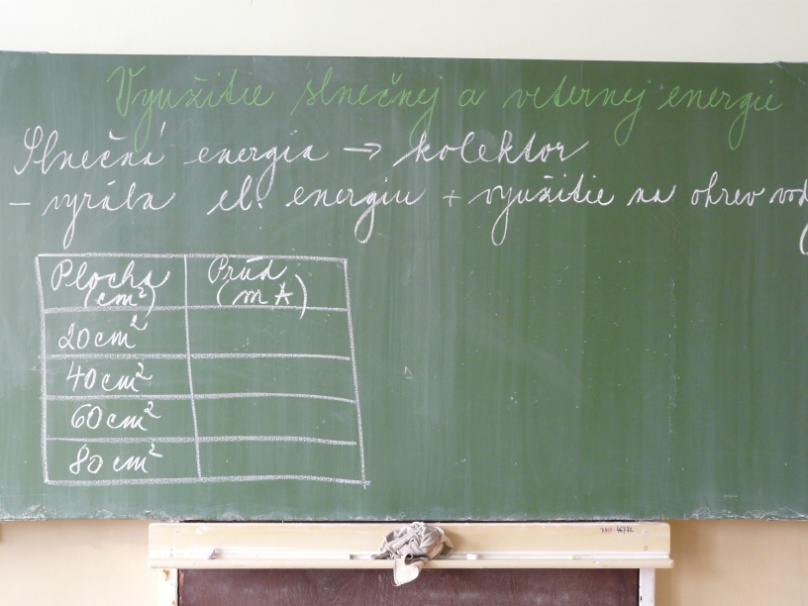 Využitie slnečnej a veternej energie
Slnečná energia → kolektor
- vyrába el. energiu + využitie na ohrev vody
Plocha (cm²) Prúd (mA)
20cm²
40cm²
60cm²
80cm²